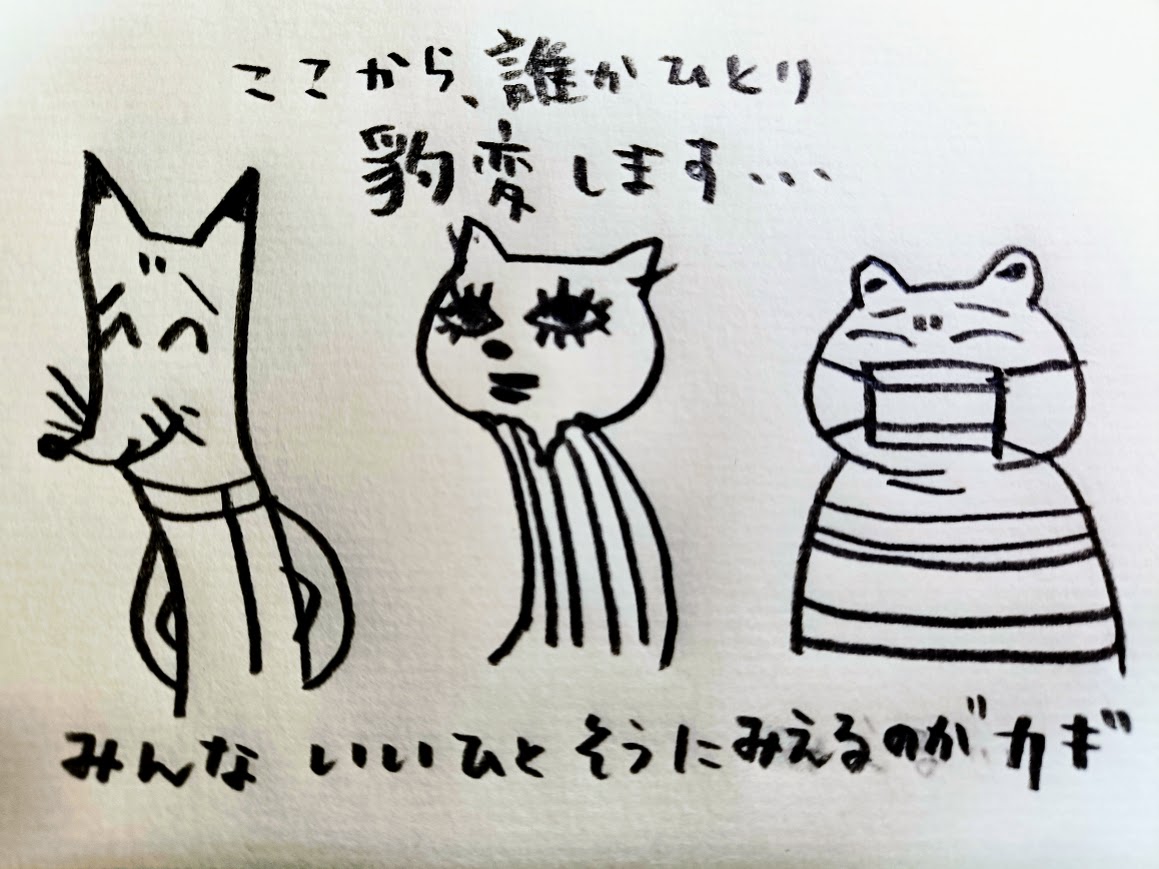 ここから、誰かひとり
豹変します...
みんな いいひとそうにみえるのがカギ